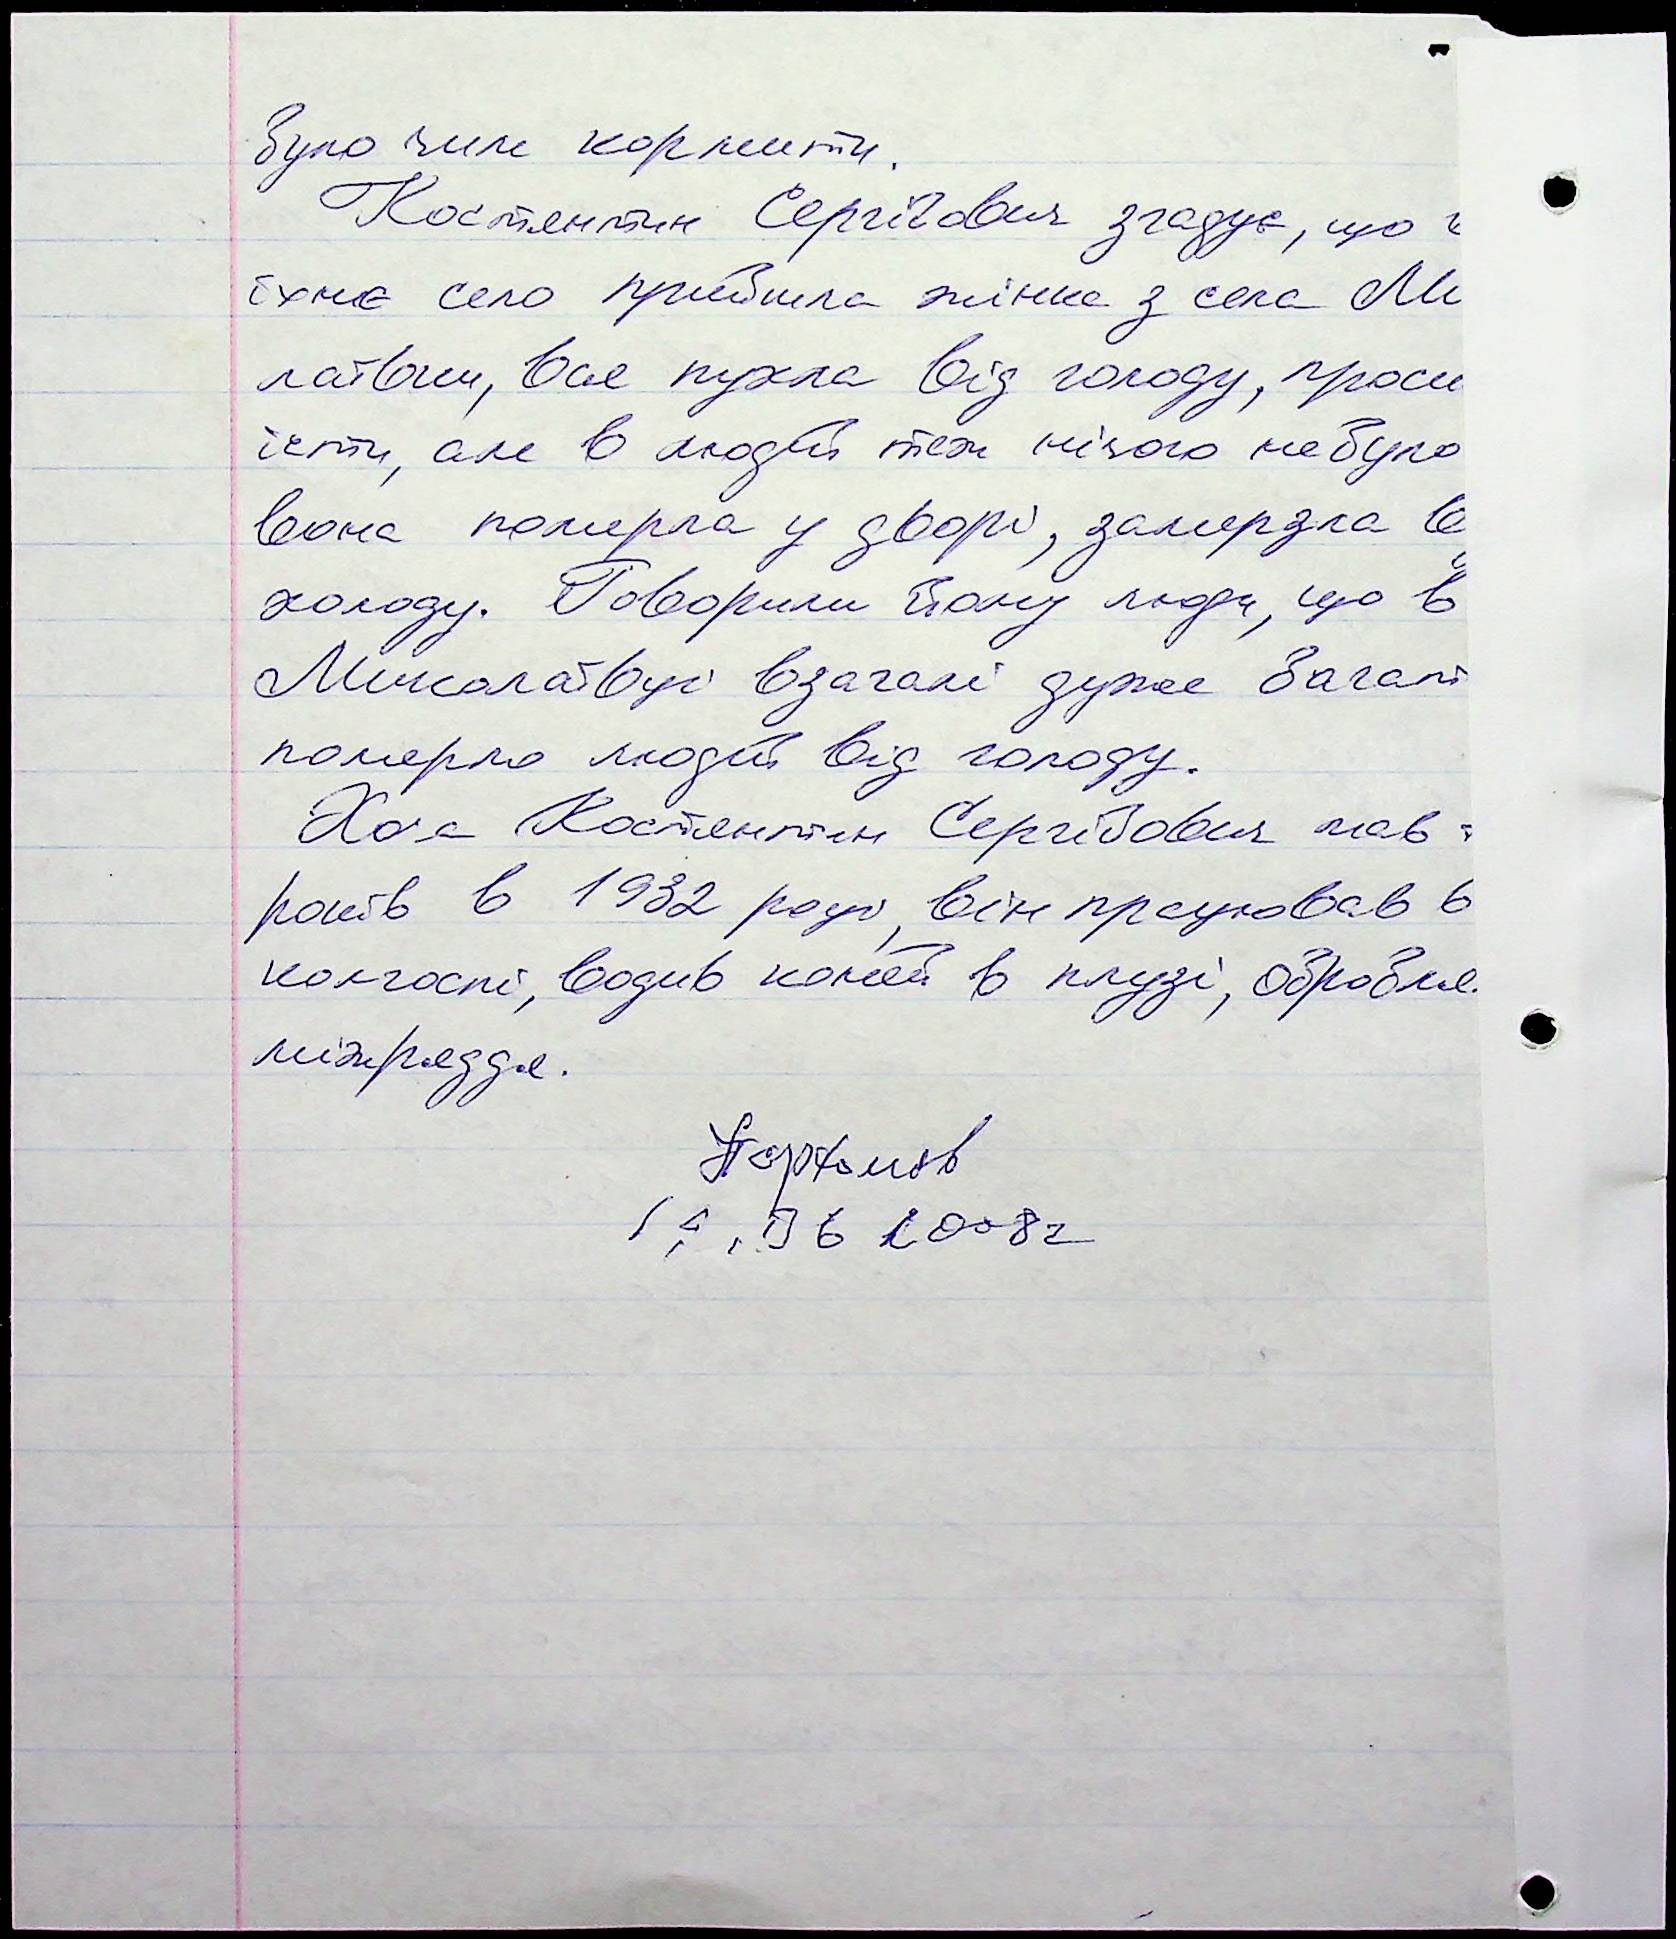 було чим кормити.
Костянтин Сергійович згадує, що
їхнє село прийшла жінка з села Ми
лаївки, вся пухла від голоду, проси
їсти, але в людей теж нічого не було
вона померла у дворі, замерзла в
холоду. Говорили йому люди, що в
Миколаївці взагалі дуже багат
померло людей від голоду.
Хоча Костянтин Сергійович мав
років в 1932 році, він працював в
колгоспі, водив коней в плузі, обробля
міжряддя.
06 2008г